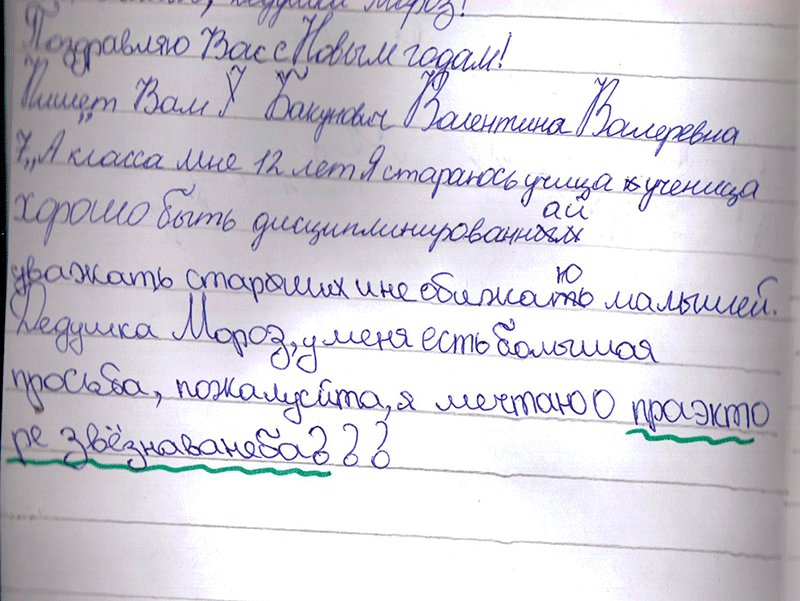 дедушка Мороз!
Поздравляю Вас с Новым годам!
Пишет Вам Бакунович Валентина Валеревна
7 „А класса мне 12 лет Я стараюсь учица ученица
хорошо быть дисциплинированнай
уважать старших и не обижаю малышей.
Дедушка Мороз, у меня есть большая
просьба, пожалуйста, я мечтаю о праэкто
ре звёзнаванеба???